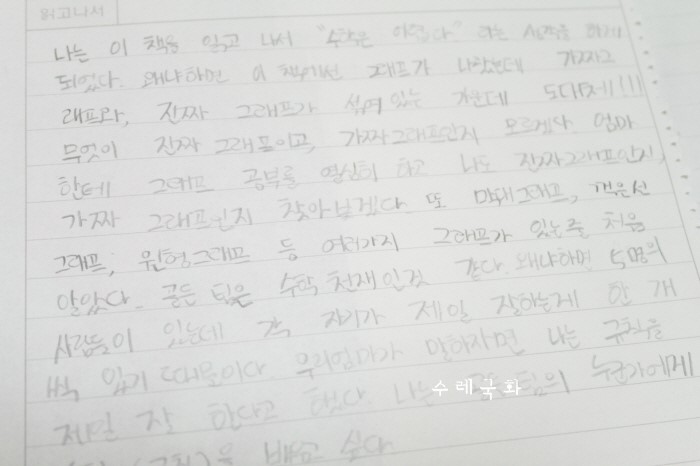 읽고나서
나는 이 책을 읽고 나서 "수학은 어렵다" 라는 생각을 하게
되었다. 왜냐하면 이 책에선 그래프가 나왔는데 가짜그
래프와, 진짜 그래프가 섞여 있는 가운데 도대체!!!
무엇이 진짜 그래프이고, 가짜그래프인지 모르겠다. 엄마
한테 그래프 공부를 열심히 하고 나도 진짜그래프인지,
가짜 그래프인지 찾아 널겠다. 또 막대그래프, 꺾은선
그래프, 원형그래프 등 여러가지 그래프가 있는줄 처음
알았다. 골든 팀은 수학 천재인것 같다. 왜냐하면 5명의
사람들이 있는데 각 자기가 제일 잘하는게 한 개
씩 있기 때문이다. 우리엄마가 말하자면 나는 규칙을
제일 잘 한다고 했다. 나는 팀의 누군가에게
을 배우고 싶다.
수레국화